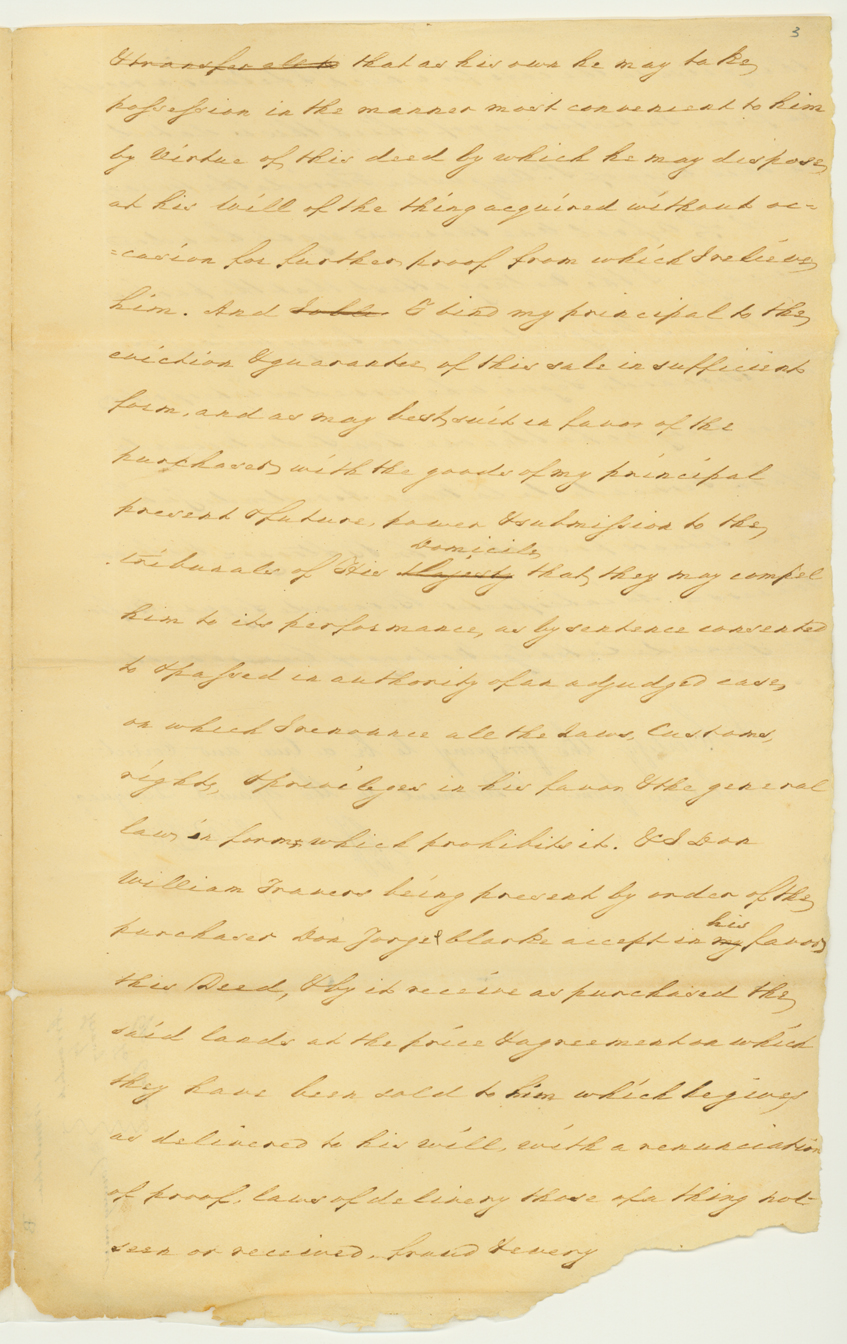 3
& transfer all to that as his own he may take
possession in the manner most convenient to him
by Virtue of this deed by which he may dispose
at his Will of the thing acquired without oc=
=casion for further proof from which I relieve
him. And I bind my principal to the
eviction & guarantee of this sale in sufficient
form, and as may best suit in favor of the
purchaser with the goods of my principal
present & future, power & submission to the
Domicile
tribunals of His Majesty that they may compel
him to its performance, as by sentence consented
to & passed in authority of an adjudged case,
on which I renounce all the Laws, Customs,
rights, & privileges in his favor & the general
law in form, which prohibits it. & I Don
William Travers being present by order of the
his
purchaser Don Jorge Clarke accept in my favor
this Deed, & by it receive as purchased the
said lands at the price & agreement on which
they have been sold to him which he gives
as delivered to his will, with a renunciation
of proof, laws of delivery those of a thing not
seen or received, fraud & every